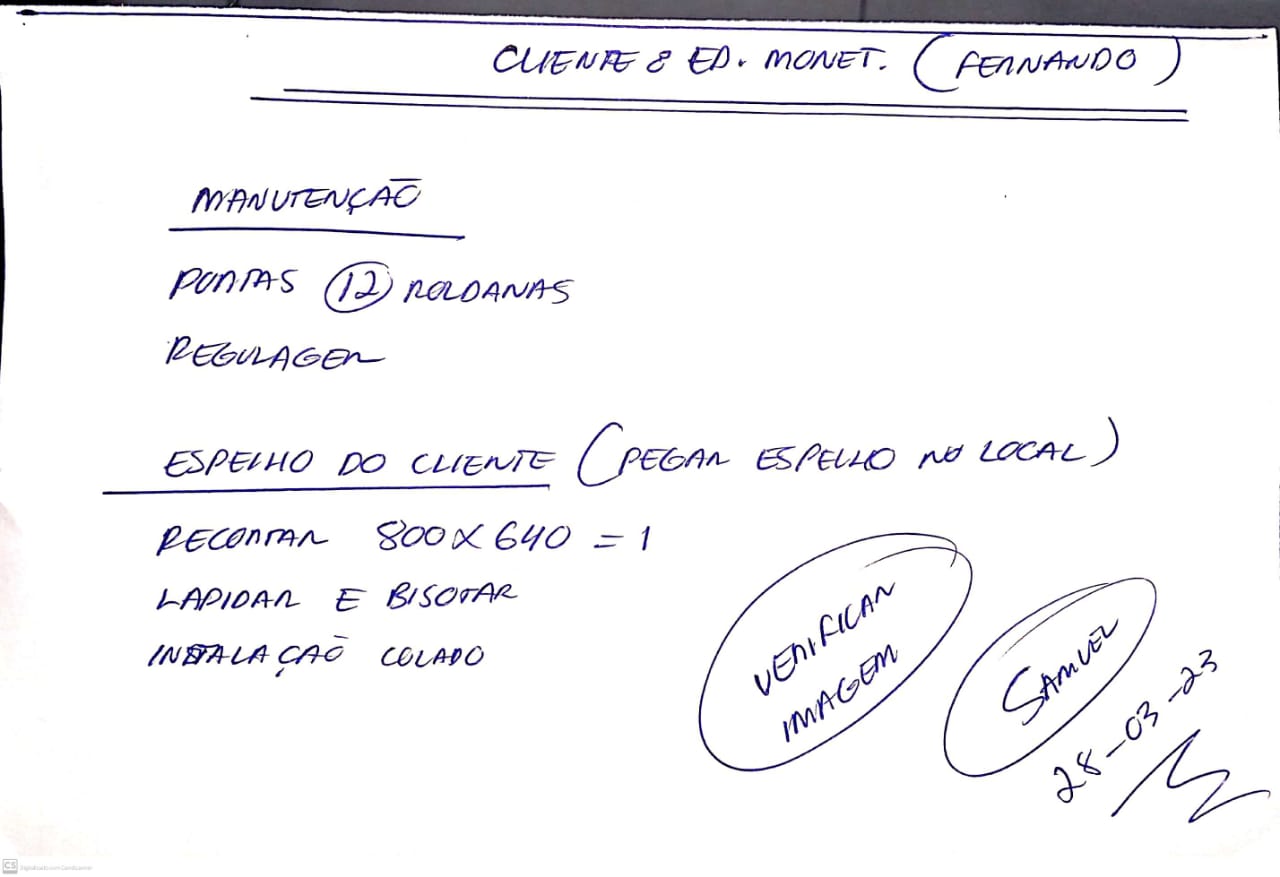 CLIENTE : ED. MONET. (FERNANDO)
MANUTENÇÃO
PORTAS 12 ROLDANAS
REGULAGEM
ESPELHO DO CLIENTE (PEGAR ESPELHO NO LOCAL)
RECORTAR 800 X 640 = 1
LAPIDAR E BISOTAR
INSTALAÇÃO COLADO
VERIFICAR
IMAGEM
SAMUEL
28-03-23
CS Digitalizado com CamScanner